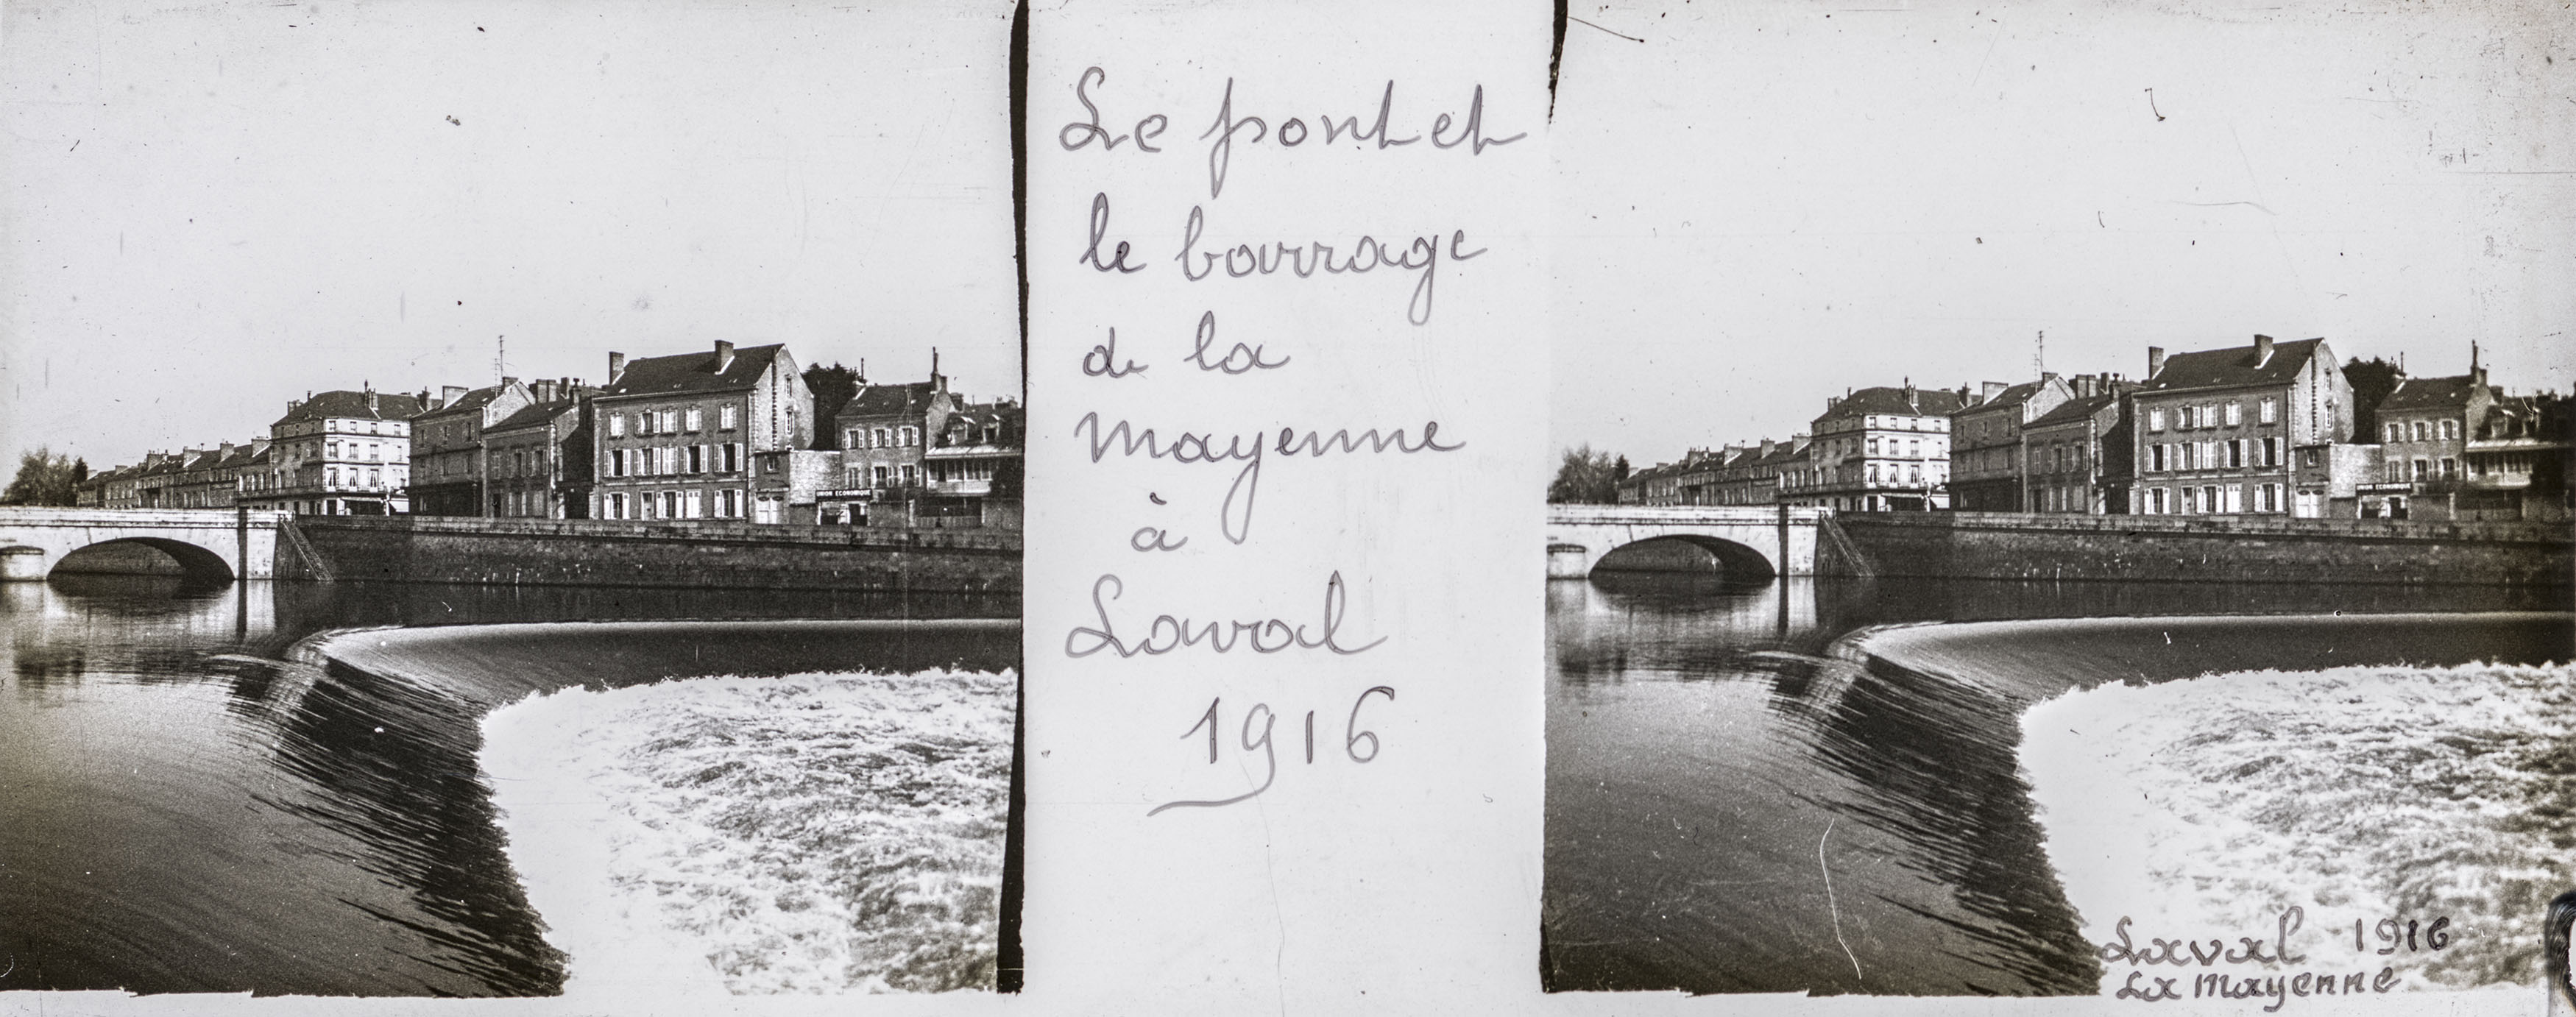 Le pont et
le barrage
de la
Mayenne
à
Laval
1916
UNION ECONOMIQUE
UNION ECONOMIQUE
Laval 1916
La Mayenne